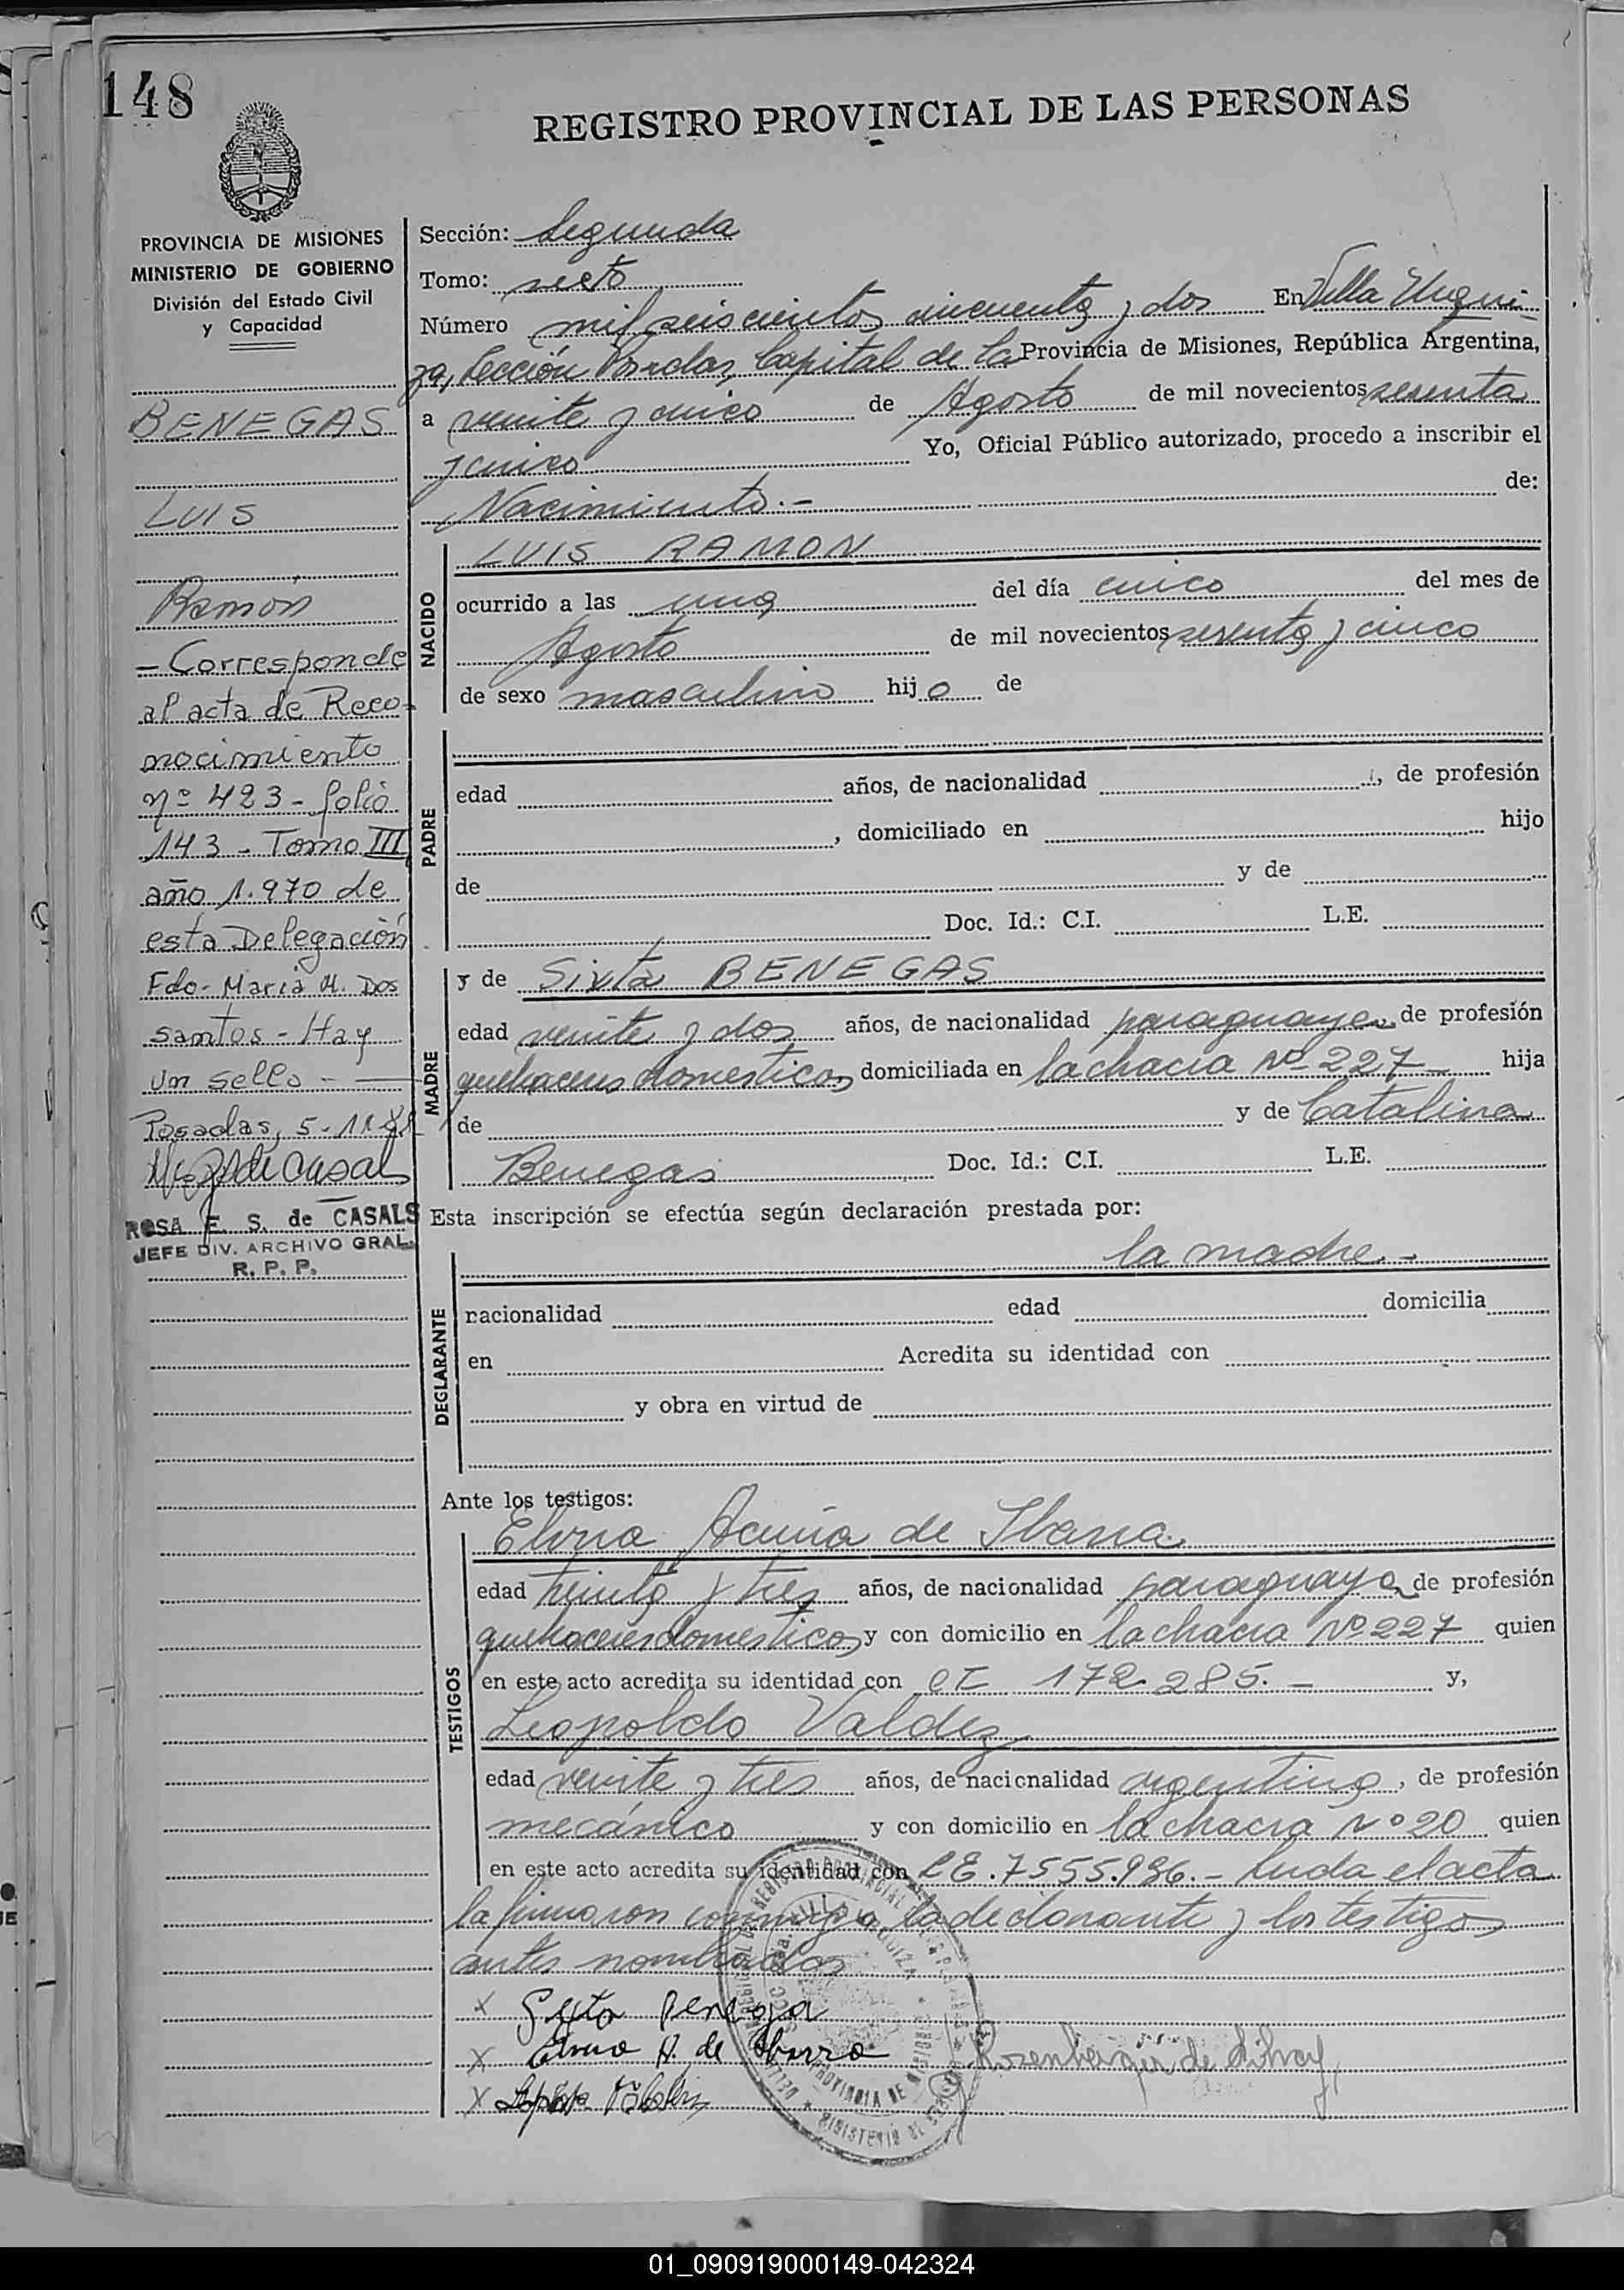 148
REGISTRO PROVINCIAL DE LAS PERSONAS
PROVINCIA DE MISIONES
MINISTERIO DE GOBIERNO
División del Estado Civil
y Capacidad
BENEGAS
LUIS
Ramón
- Corresponde
al acta de Reco-
nocimiento
nº 423 - folio
143 - Tomo III
año 1.970 de
esta Delegación
Fdo - Maria H. Dos
santos - Hay
un sello -
Posadas, 5-11
ROSA E. S. de CASALS
JEFE DIV. ARCHIVO GRAL.
R. P. P.
Sección: Segunda
Tomo: sexto
Número mil seiscientos cincuenta y dos En Villa Urqui-
za, Sección Posadas, Capital de la Provincia de Misiones, República Argentina,
a veinte y cinco de Agosto de mil novecientos sesenta
y cinco Yo, Oficial Público autorizado, procedo a inscribir el
Nacimiento.- de:
NACIDO
LUIS RAMON
ocurrido a las una del día cinco del mes de
Agosto de mil novecientos sesenta y cinco
de sexo masculino hijo de
PADRE
edad años, de nacionalidad , de profesión
, domiciliado en hijo
de y de
Doc. Id.: C.I. L.E.
MADRE
y de Sixta BENEGAS
edad veinte y dos años, de nacionalidad paraguaya, de profesión
quehaceres domesticos domiciliada en la chacra Nº 227 hija
de y de Catalina
Benegas Doc. Id.: C.I. L.E.
Esta inscripción se efectúa según declaración prestada por:
la madre.-
DEGLARANTE
nacionalidad edad domicilia
en Acredita su identidad con
y obra en virtud de
Ante los testigos:
TESTIGOS
Elvira Acuña de Ibarra
edad treinta y tres años, de nacionalidad paraguaya, de profesión
quehaceres domesticos y con domicilio en la chacra Nº 227 quien
en este acto acredita su identidad con CI 172.285.- y,
Leopoldo Valdez
edad veinte y tres años, de nacionalidad argentino, de profesión
mecánico y con domicilio en la chacra Nº 20 quien
en este acto acredita su identidad con LE. 7555.936.- Leida el acta
la firmaron conmigo la declarante y los testigos
antes nombrados
x Sixta Benega
x Elvira A. de Ibarra
x
01_090919000149-042324